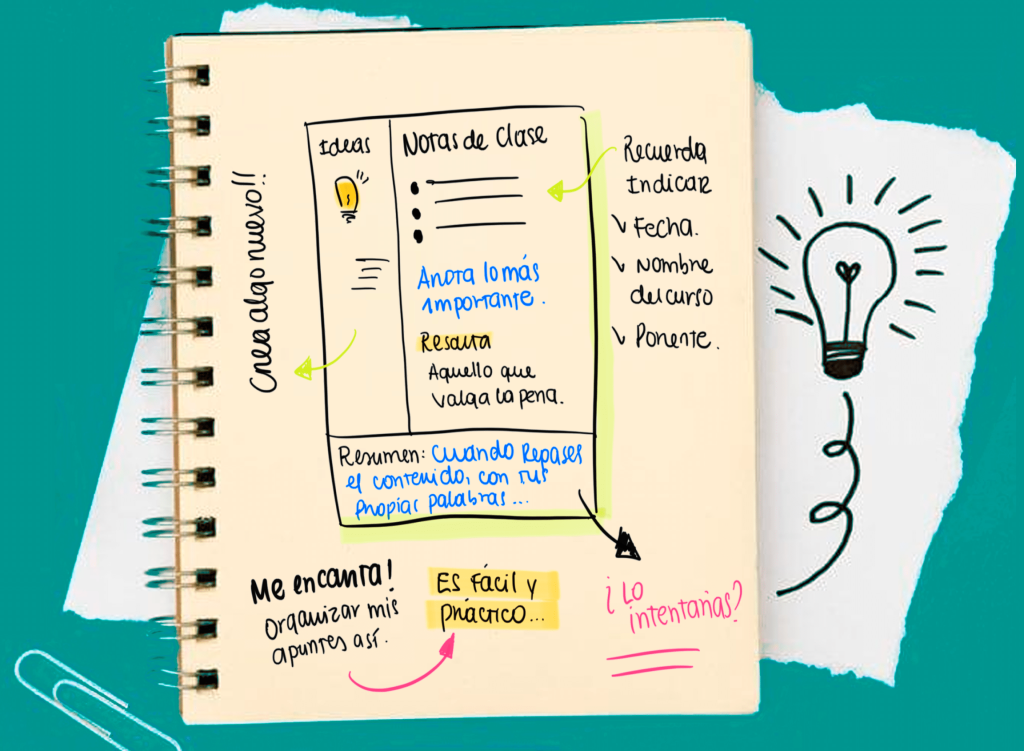 Ideas
Notas de Clase
Anota lo más
importante.
Resalta
Aquello que
valga la pena.
Resumen: Cuando Repases
el contenido, con tus
propias palabras...
Crea algo nuevo!!
Recuerda
Indicar
Fecha.
Nombre
del curso
Ponente.
Me encanta!
organizar mis
apuntes así.
Es fácil y
práctico...
¿Lo
intentarías?